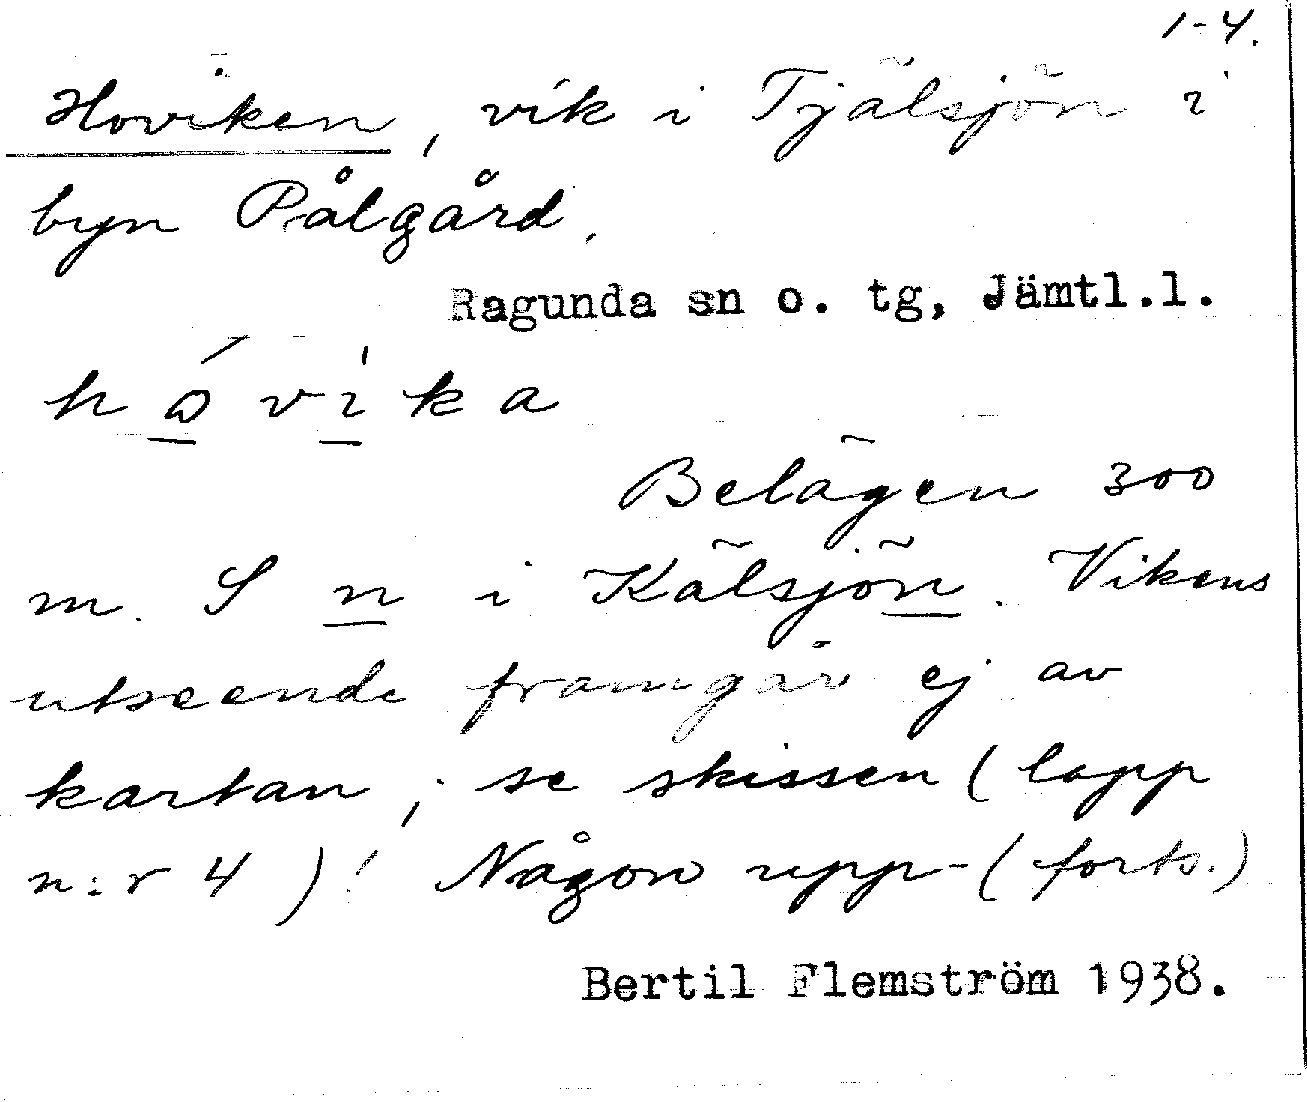 1-4.
Hoviken, vik i Tjälsjön i
byn Pålgård.
Ragunda sn o. tg, Jämtl.l.
hóvika
Belägen 300
m. S n i Kälsjön. Vikens
utseende framgår ej av
kartan; se skissen (lapp
n:r 4)! Någon upp- (forts.)
Bertil Flemström 1938.